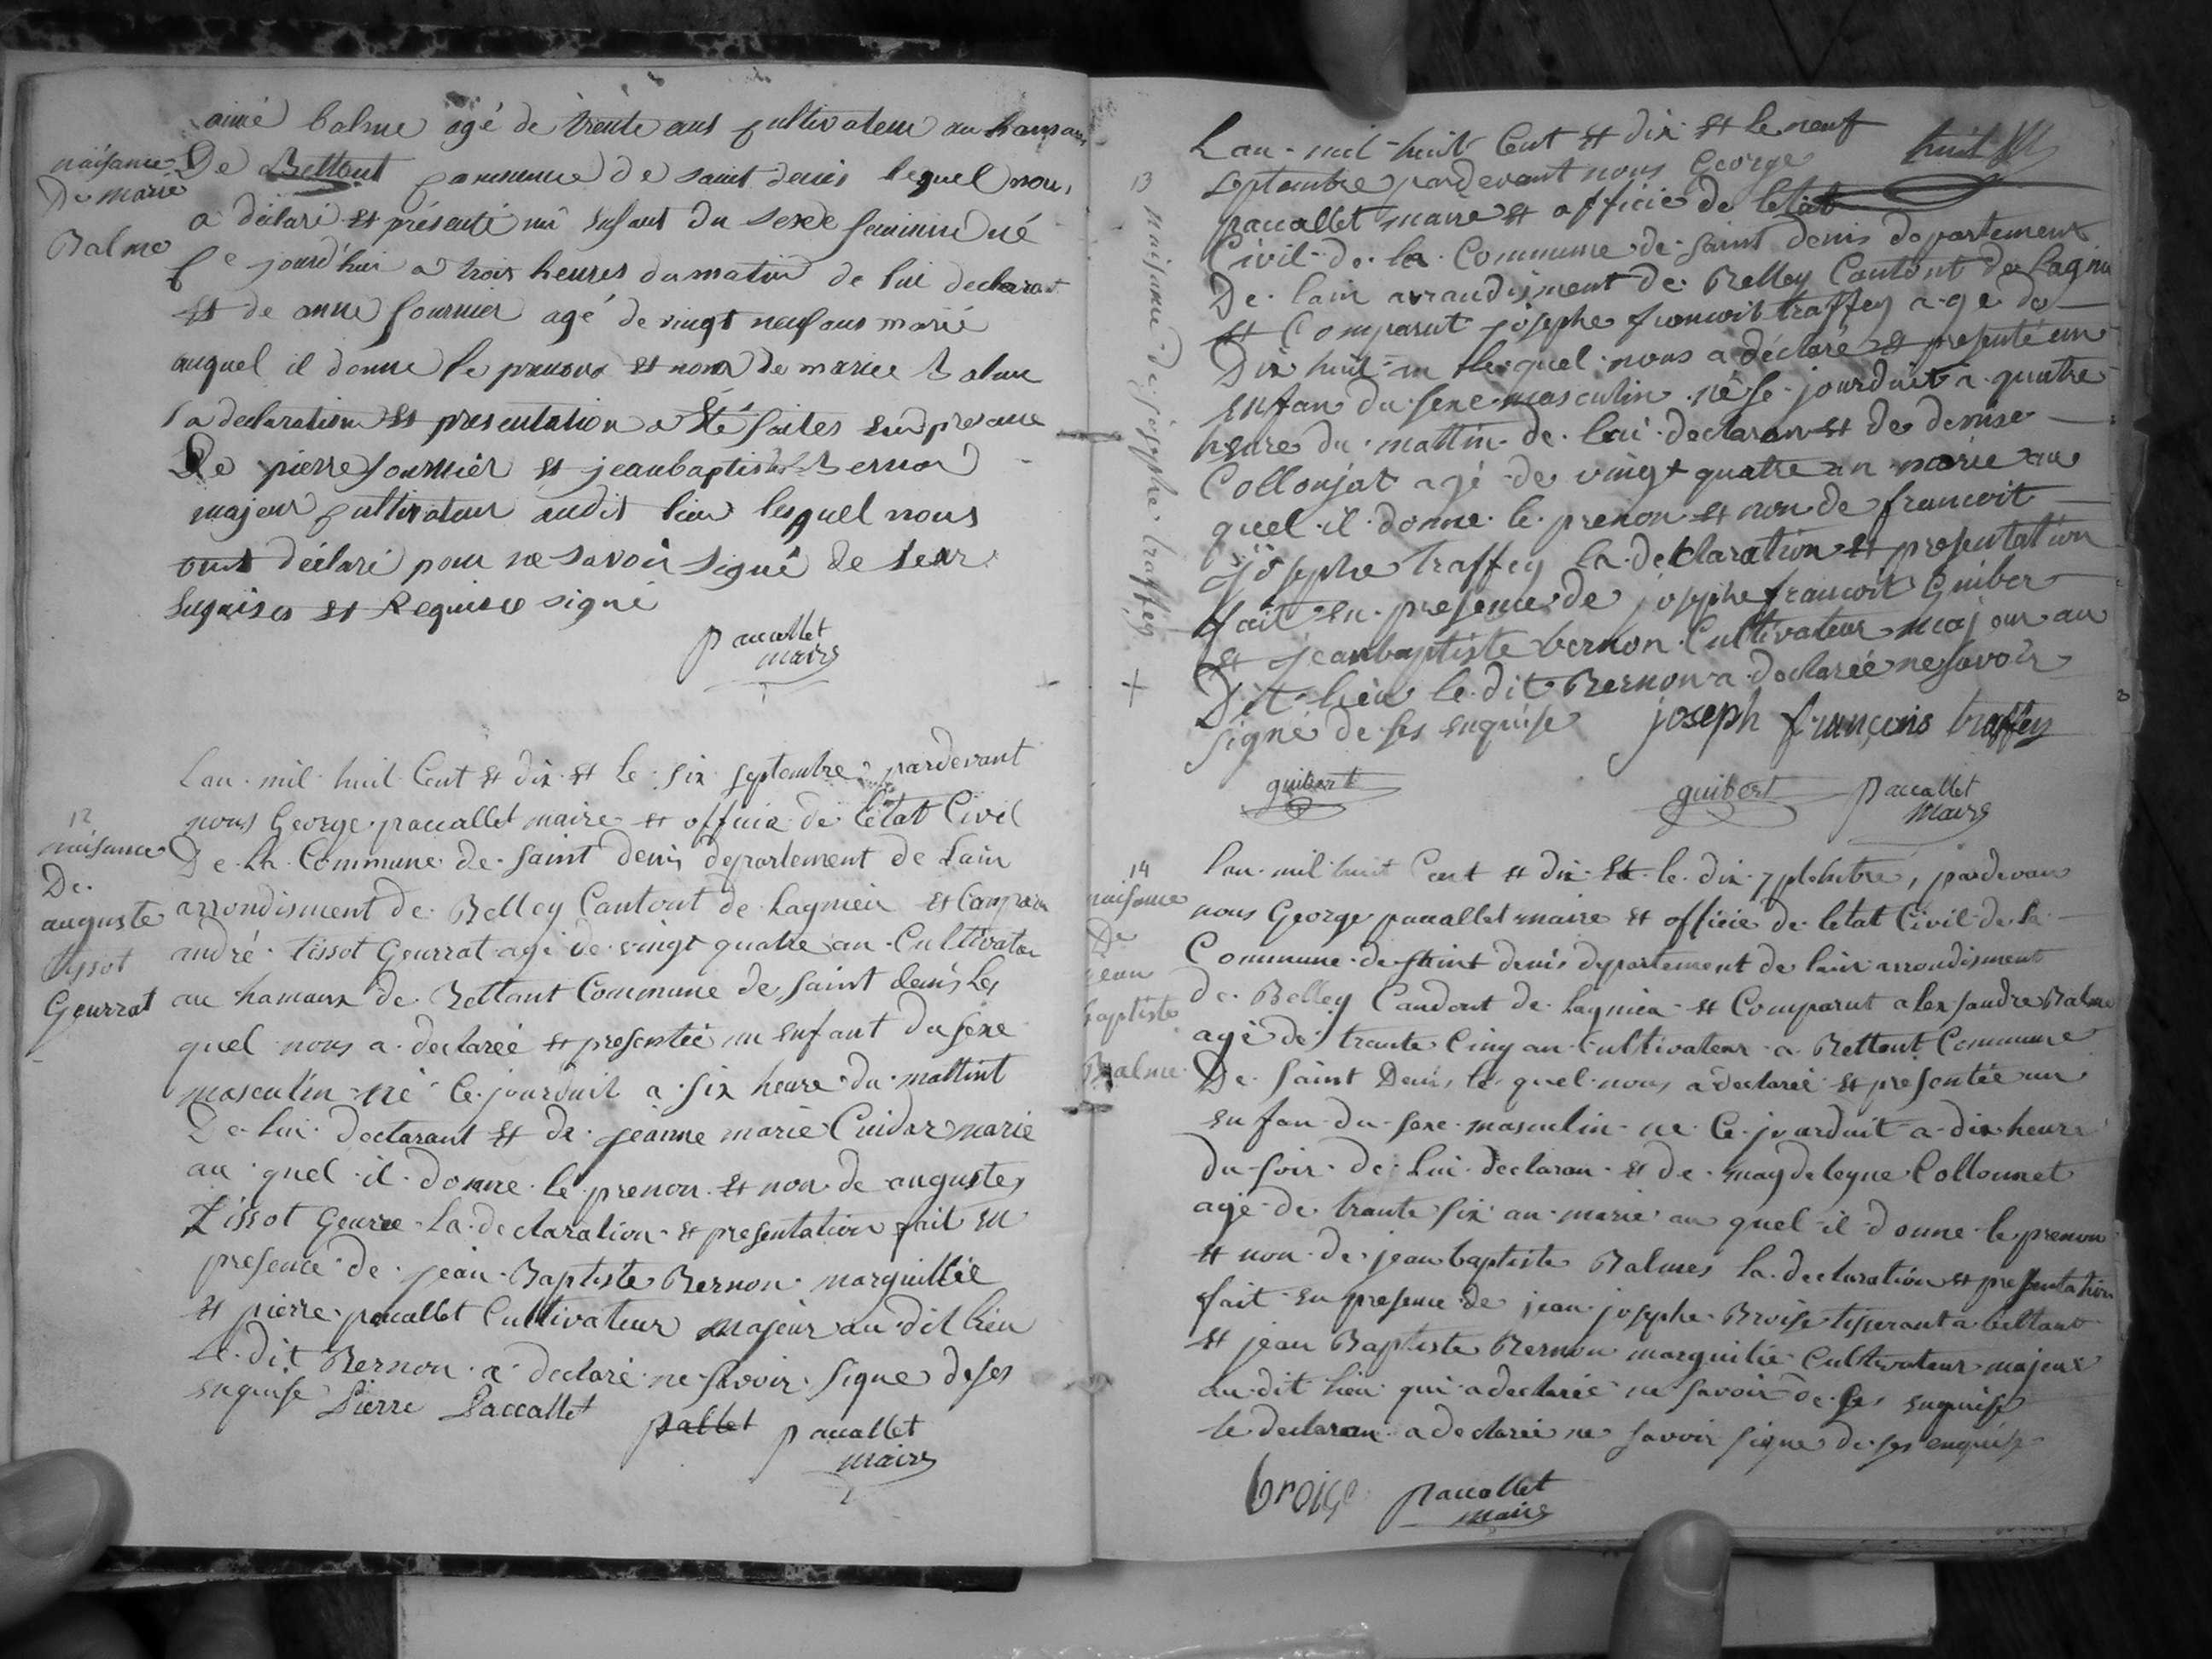 aimé balme agé de trente ans cultivateur au hamaux
naisance
De marie
Balme
De Bettant commune de saint denis lequel nous
a déclaré et présenté un enfant du sexe feminin né
ce jourd'hui a trois heures du matin de lui declarant
et de anne fournier agé de vingt neuf ans marié
auquel il donne le prenom et nom de marie Balme
la declaration et presentation a été faites en presence
De pierre fournier et jeanbaptiste Bernon
majeur cultivateur audit lieu lesquel nous
ont déclaré pour ne savoir signé de leur
enquises et Requise signé
paccallet
maire
12
naisance
De
auguste
tissot
Geurrat
Lan mil huit Cent et dix et le six septembre pardevant
nous George paccallet maire et officie de létat Civil
De la Commune de saint denis departement de Lain
arrondisment de Belley Cantont de Lagnieu et Comparu
andré tissot Geurrat agé de vingt quatre an Cultivateur
au hamaux de Bettant Commune de saint denis Le
quel nous a declareé et presentée un enfant du sexe
masculin né ce jourduit a six heure du mattint
De lui declarant et de jeanne marie Cuidar marie
au quel il donne le prenon et non de auguste
Tissot Geurre la declaration et presentation fait en
presence de jean Baptiste Bernon marguillie
et pierre paccallet Cultivateur majeur au dit lieu
le dit Bernon a declaré ne savoir signe de ses
enquise Pierre Paccallet
pallet paccallet
maire
13 naisance de josephe traffey
Lan mil huit Cent et dix et le neuf
septembre pardevant nous George
paccallet maire et officie de letat
Civil de la Commune de saint denis departement
De lain arrandisment de Belley Cantont de Lagnieu
et Comparut josephe francoit traffey agé de
Dix huit an lequel nous a déclaré et presenté un
enfan du sexe masculin né se jourduit a quatre
heure du mattin de lui declaran et de denise
Collonjat agé de vingt quatre an marie au
quel il donne le prenon et non de francoit
josephe traffey la declaration et presentation
fait en presence de josephe francoit Guiber
et jeanbaptiste bernon Cultivateur majour au
Dit lieu le dit Bernon a declareé ne savoir
signé de ses enquise joseph françois traffey
guibert guibert paccallet
maire
14
naisance
De
jean
baptiste
Balme
Lan mil huit Cent et dix et le dix 7ptembre, pardevan
nous George paccallet maire et officie de letat Civil de la
Commune de saint denis departement de lain arrondisment
de Belley Candont de Lagniea et Comparut alexsandre Balme
agé de trante Cinq an Cultivateur a Bettant Commune
De saint Denis le quel nous a declareé et presentée un
enfan du sexe masculin ne ce jourduit a dix heure
du soir de Lui declaran et de magdeleyne Collonnet
agé de trante six an marie au quel il donne le prenon
et non de jeanbaptiste Balmes la declaration et presentation
fait en presence de jean josephe Broise tisserant a bettant
et jean Baptiste Bernon marguilié Cultivateur majeur
au dit lieu qui a declareé ne savoir de ses enquise
le declaran a declareé ne savoir signe de ses enquise
broise paccallet
maire